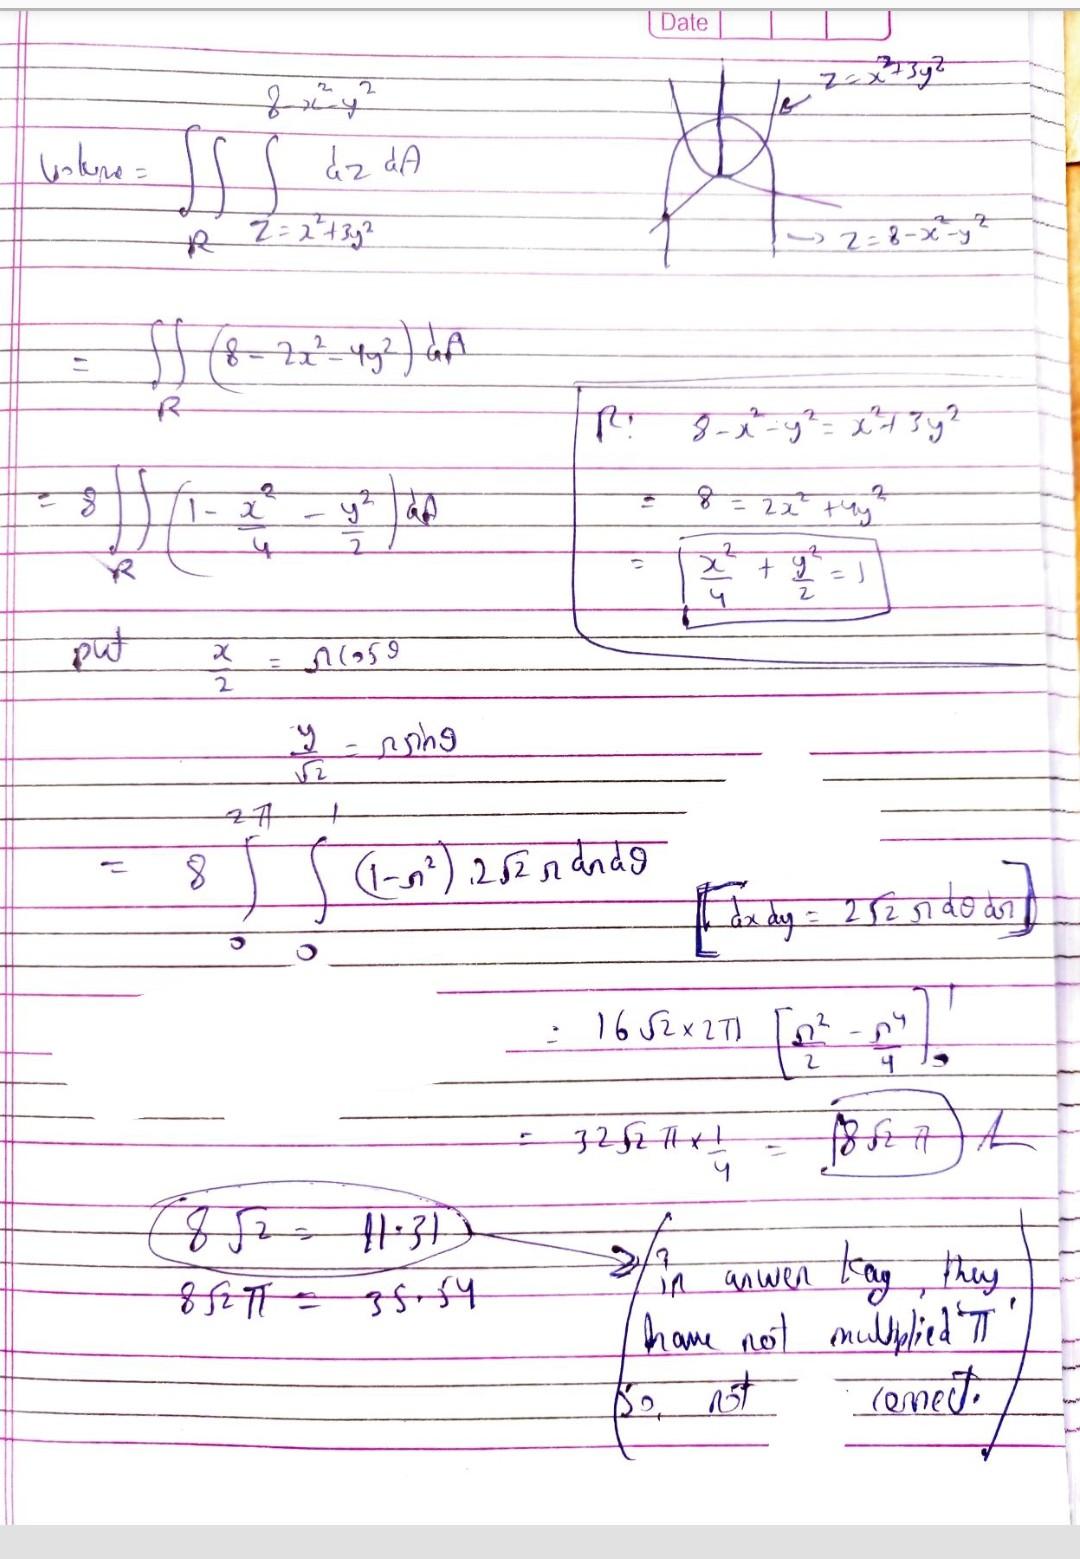 Date
z = x²+3y²
8-x²-y²
Volume = ∫∫ ∫ dz dA
R z = x²+3y²
→ z = 8-x²-y²
= ∫∫ (8-2x²-4y²) dA
R
R: 8-x²-y² = x²+3y²
= 8 ∫∫ (1 - x²/4 - y²/2) dA
R
= 8 = 2x²+4y²
= x²/4 + y²/2 = 1
put x/2 = r cosθ
y/√2 = r sinθ
2π 1
= 8 ∫ ∫ (1-r²) . 2√2 r dr dθ
0 0
[dx dy = 2√2 r dθ dr]
= 16√2 × 2π [r²/2 - r⁴/4]₀¹
= 32√2 π × 1/4 = 8√2 π
8√2 = 11.31
8√2π = 35.54
in anwer kay, they
have not multiplied 'π'
so, not correct.